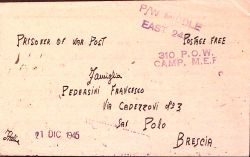 P/W MIDDLE
EAST 24
PRISONER OF WAR POST
POSTAGE FREE
310 P.O.W.
CAMP, M.E.F
Famiglia
PEDRASINI FRANCESCO
VIA CADEZZONI n° 3
SAN POLO
BRESCIA
Italia
21 DIC 1945